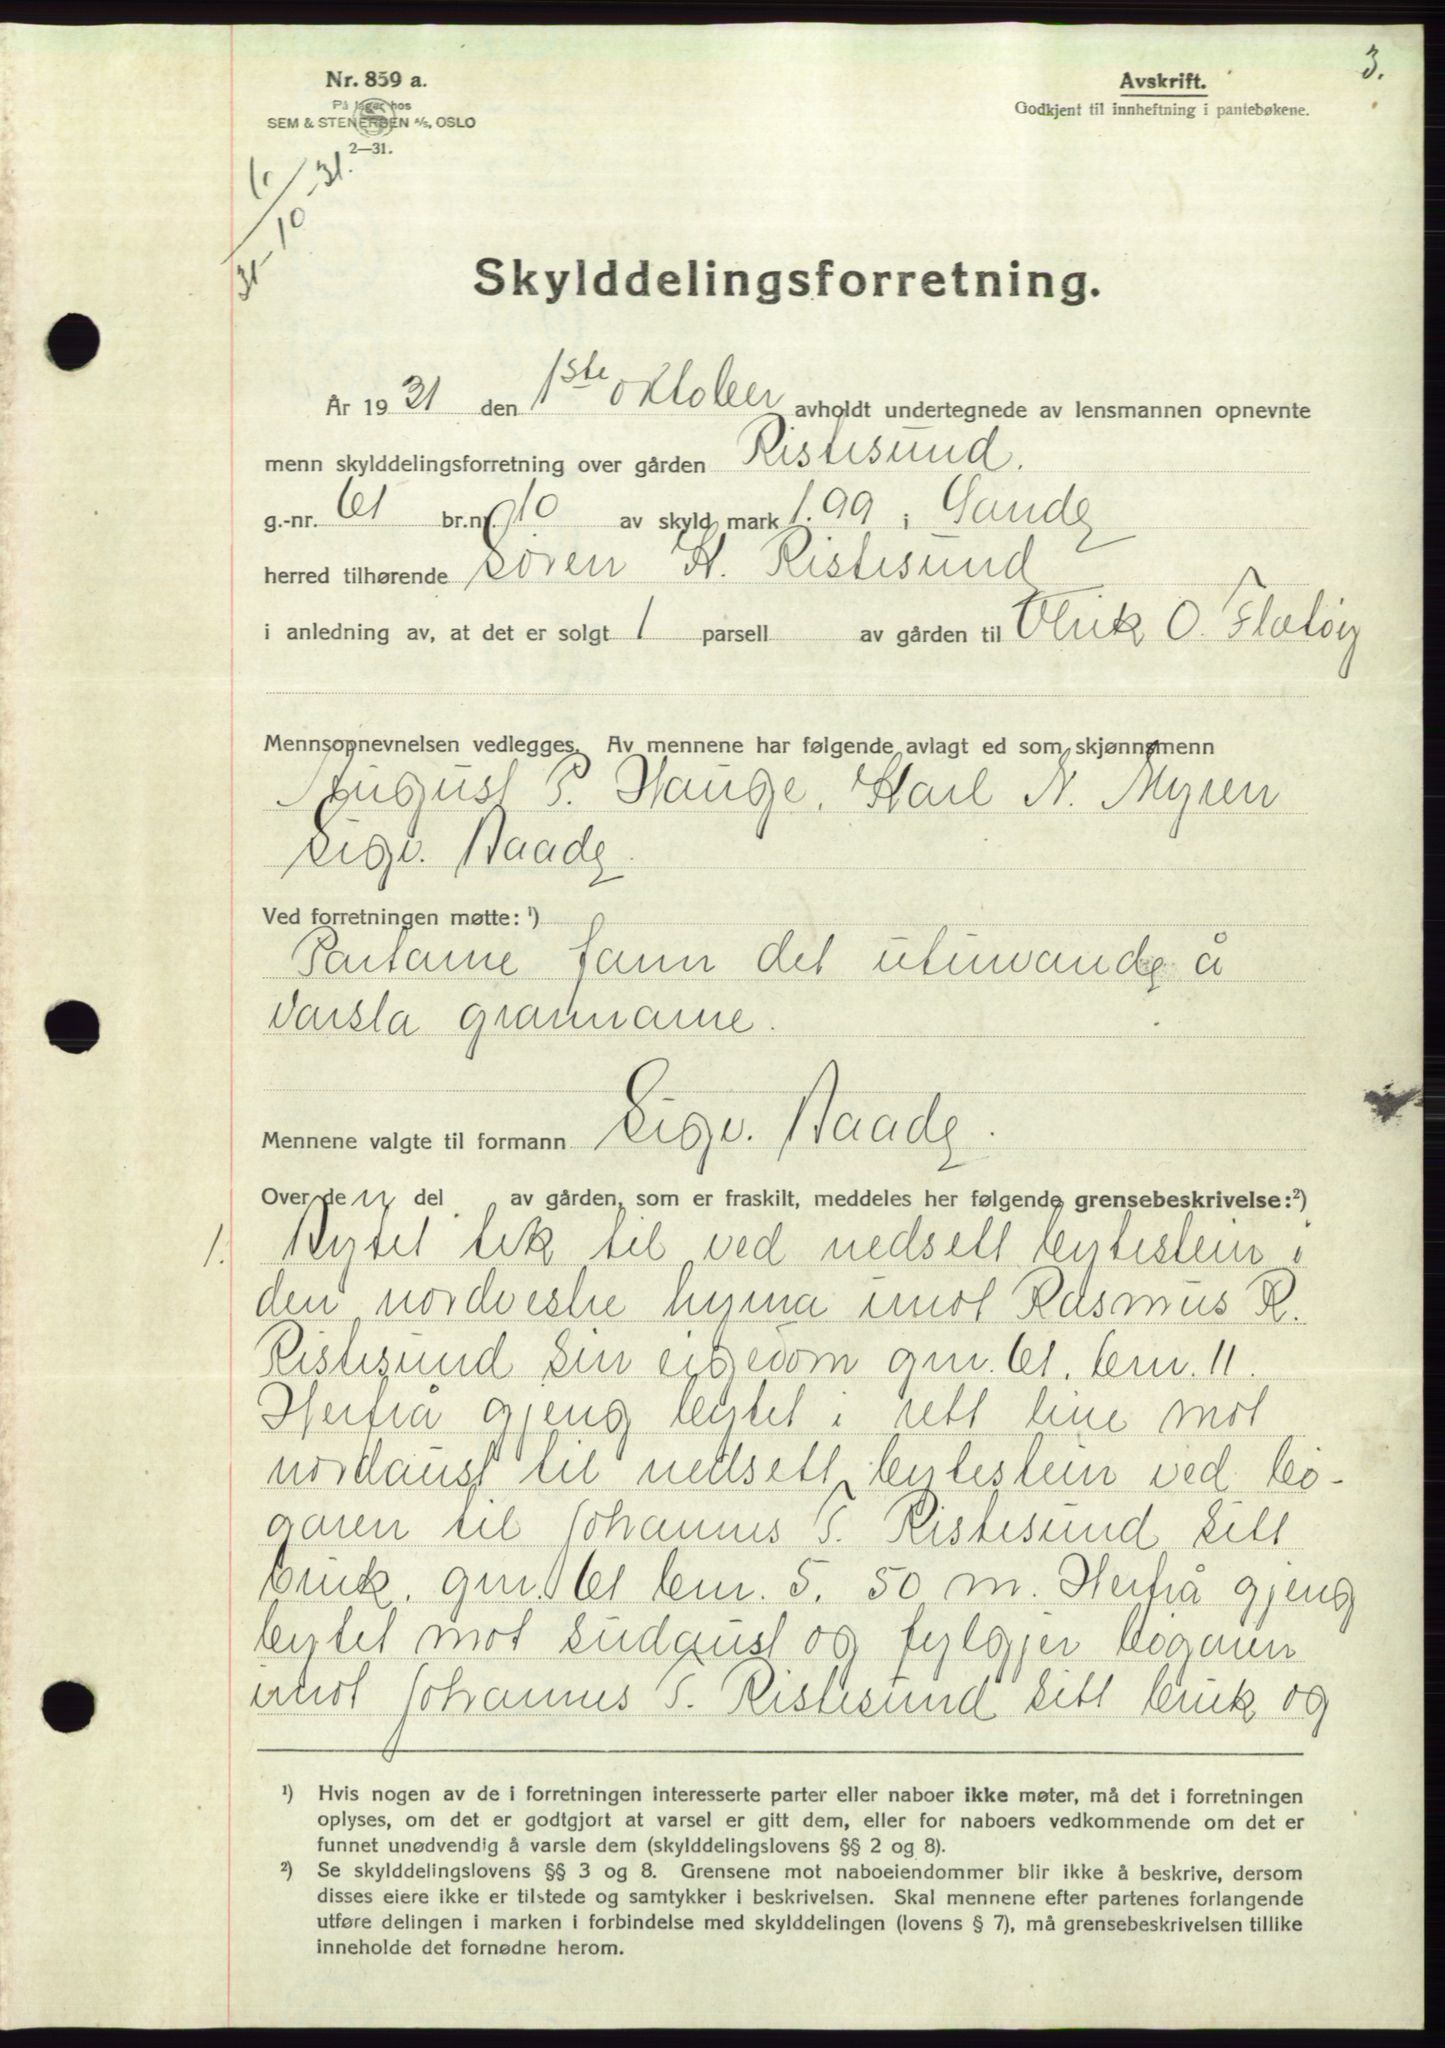 3.
Nr. 859 a.
På lager hos
SEM & STENERSEN A/S, OSLO
2—31.
Avskrift.
Godkjent til innheftning i pantebøkene.
1/31-10-31.
Skylddelingsforretning.
År 1931 den 1ste oktober avholdt undertegnede av lensmannen opnevnte
menn skylddelingsforretning over gården Ristesund.
g.-nr. 61 br.nr. 10 av skyld mark 1.99 i Sande
herred tilhørende Søren H. Ristesund
i anledning av, at det er solgt 1 parsell av gården til Ulrik O. Flatøy
Mennsopnevnelsen vedlegges. Av mennene har følgende avlagt ed som skjønnsmenn
August P. Hauge, Karl N. Myren
Sigv. Aaade
Ved forretningen møtte: ¹)
Partarne fann det uturvande å
varsla grannarne.
Mennene valgte til formann Sigv.
Over den del av gården, som er fraskilt, meddeles her følgende grensebeskrivelse:²)
1. Bytet tek til ved nedsett bytestein i
den nordvestre hyrna imot Rasmus R.
Ristesund sin eigedom gnr. 61. bnr. 11.
Herfrå gjeng bytet i rett line mot
nordaust til nedsett bytestein ved bø-
garen til Johannes T. Ristesund sitt
bruk, gnr. 61 bnr. 5. 50 m. Herfrå gjeng
bytet mot sudaust og fylgjer bøgaren
imot Johannes T. Ristesund sitt bruk og
¹) Hvis nogen av de i forretningen interesserte parter eller naboer ikke møter, må det i forretningen
oplyses, om det er godtgjort at varsel er gitt dem, eller for naboers vedkommende om det er
funnet unødvendig å varsle dem (skylddelingslovens §§ 2 og 8).
²) Se skylddelingslovens §§ 3 og 8. Grensene mot naboeiendommer blir ikke å beskrive, dersom
disses eiere ikke er tilstede og samtykker i beskrivelsen. Skal mennene efter partenes forlangende
utføre delingen i marken i forbindelse med skylddelingen (lovens § 7), må grensebeskrivelsen tillike
inneholde det fornødne herom.